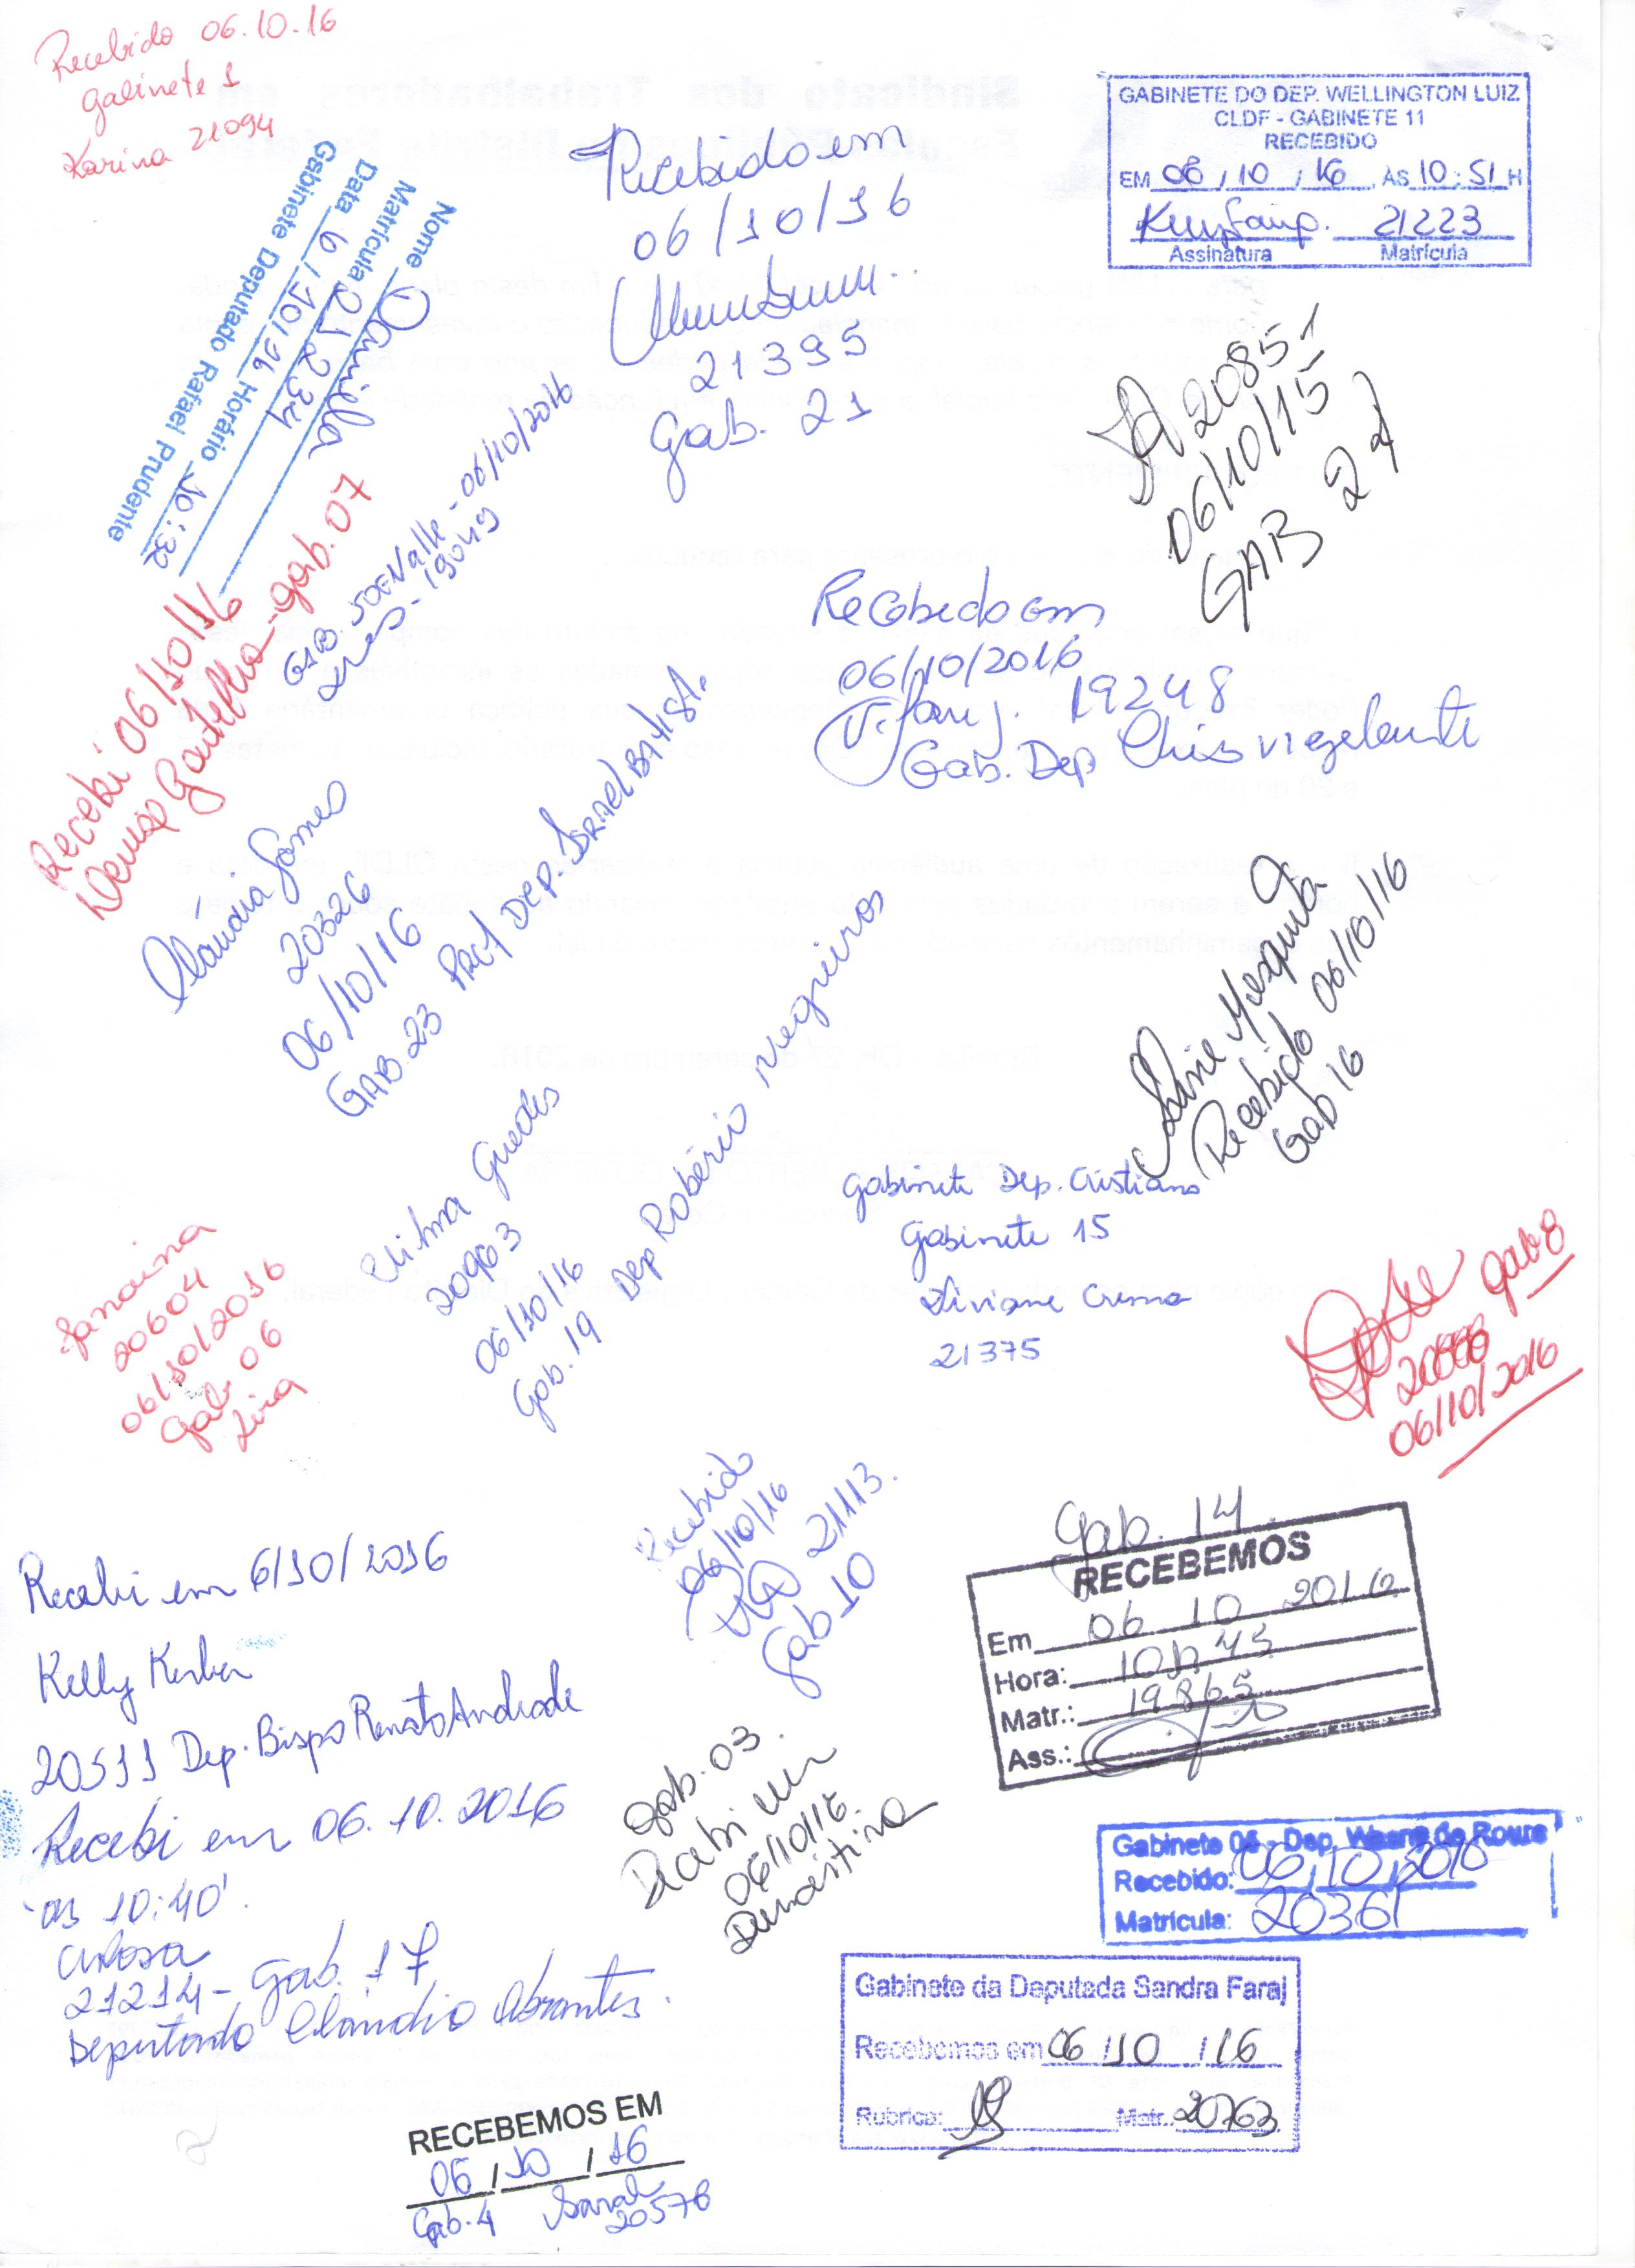 Recebido 06.10.16
gabinete 1
Karina 21094
Nome Danila
Matrícula 21234
Data 6/10/16 Horário 10:32
Gabinete Deputado Rafael Prudente
Recebido em
06/10/16
21395
gab. 21
GABINETE DO DEP. WELLINGTON LUIZ
CLDF - GABINETE 11
RECEBIDO
EM 06/10/16 ÀS 10:51 H
21223
Assinatura Matrícula
20851
06/10/15
GAB 24
Recebi 06/10/16
Denise Gontelho - gab. 07
GAB. JOE Valle - 06/10/2016
- 19049
Recebido em
06/10/2016
19248
Gab. Dep Chico vigelante
Claudia Gomes
20326
06/10/16
GAB 23 Prof Dep. Israel Batist.
Aline Mesquita
Recebido 06/10/16
Gab 16
Elilma Guedes
20903
06/10/16
Gab. 19 Dep Robério Negreiros
Gabinete Dep. Cristiano
Gabinete 15
Viviane Crema
21375
Janaina
20604
06/10/2016
gab. 06
Lira
gab 8
06/10/2016
Recebido
06/10/16
21113.
Gab 10
Gab. 14.
RECEBEMOS
Em 06 10 2016
Hora: 10h45
Matr.: 19865
Ass.:
Recebi em 6/10/2016
Kelly Kerber
20511 Dep. Bispo Renato Andrade
Recebi em 06.10.2016
às 10:40'.
21214 - Gab. 17
Deputado Claudio Abrantes.
Gab. 03.
Recebi em
06/10/16.
Gabinete 05 - Dep. Wasny de Roure
Recebido: 06/10/2016
Matrícula: 20361
Gabinete da Deputada Sandra Faraj
Recebemos em 06/10/16
Rubrica: Matr.: 20763
RECEBEMOS EM
06/10/16
Gab. 4 Sarah
20578